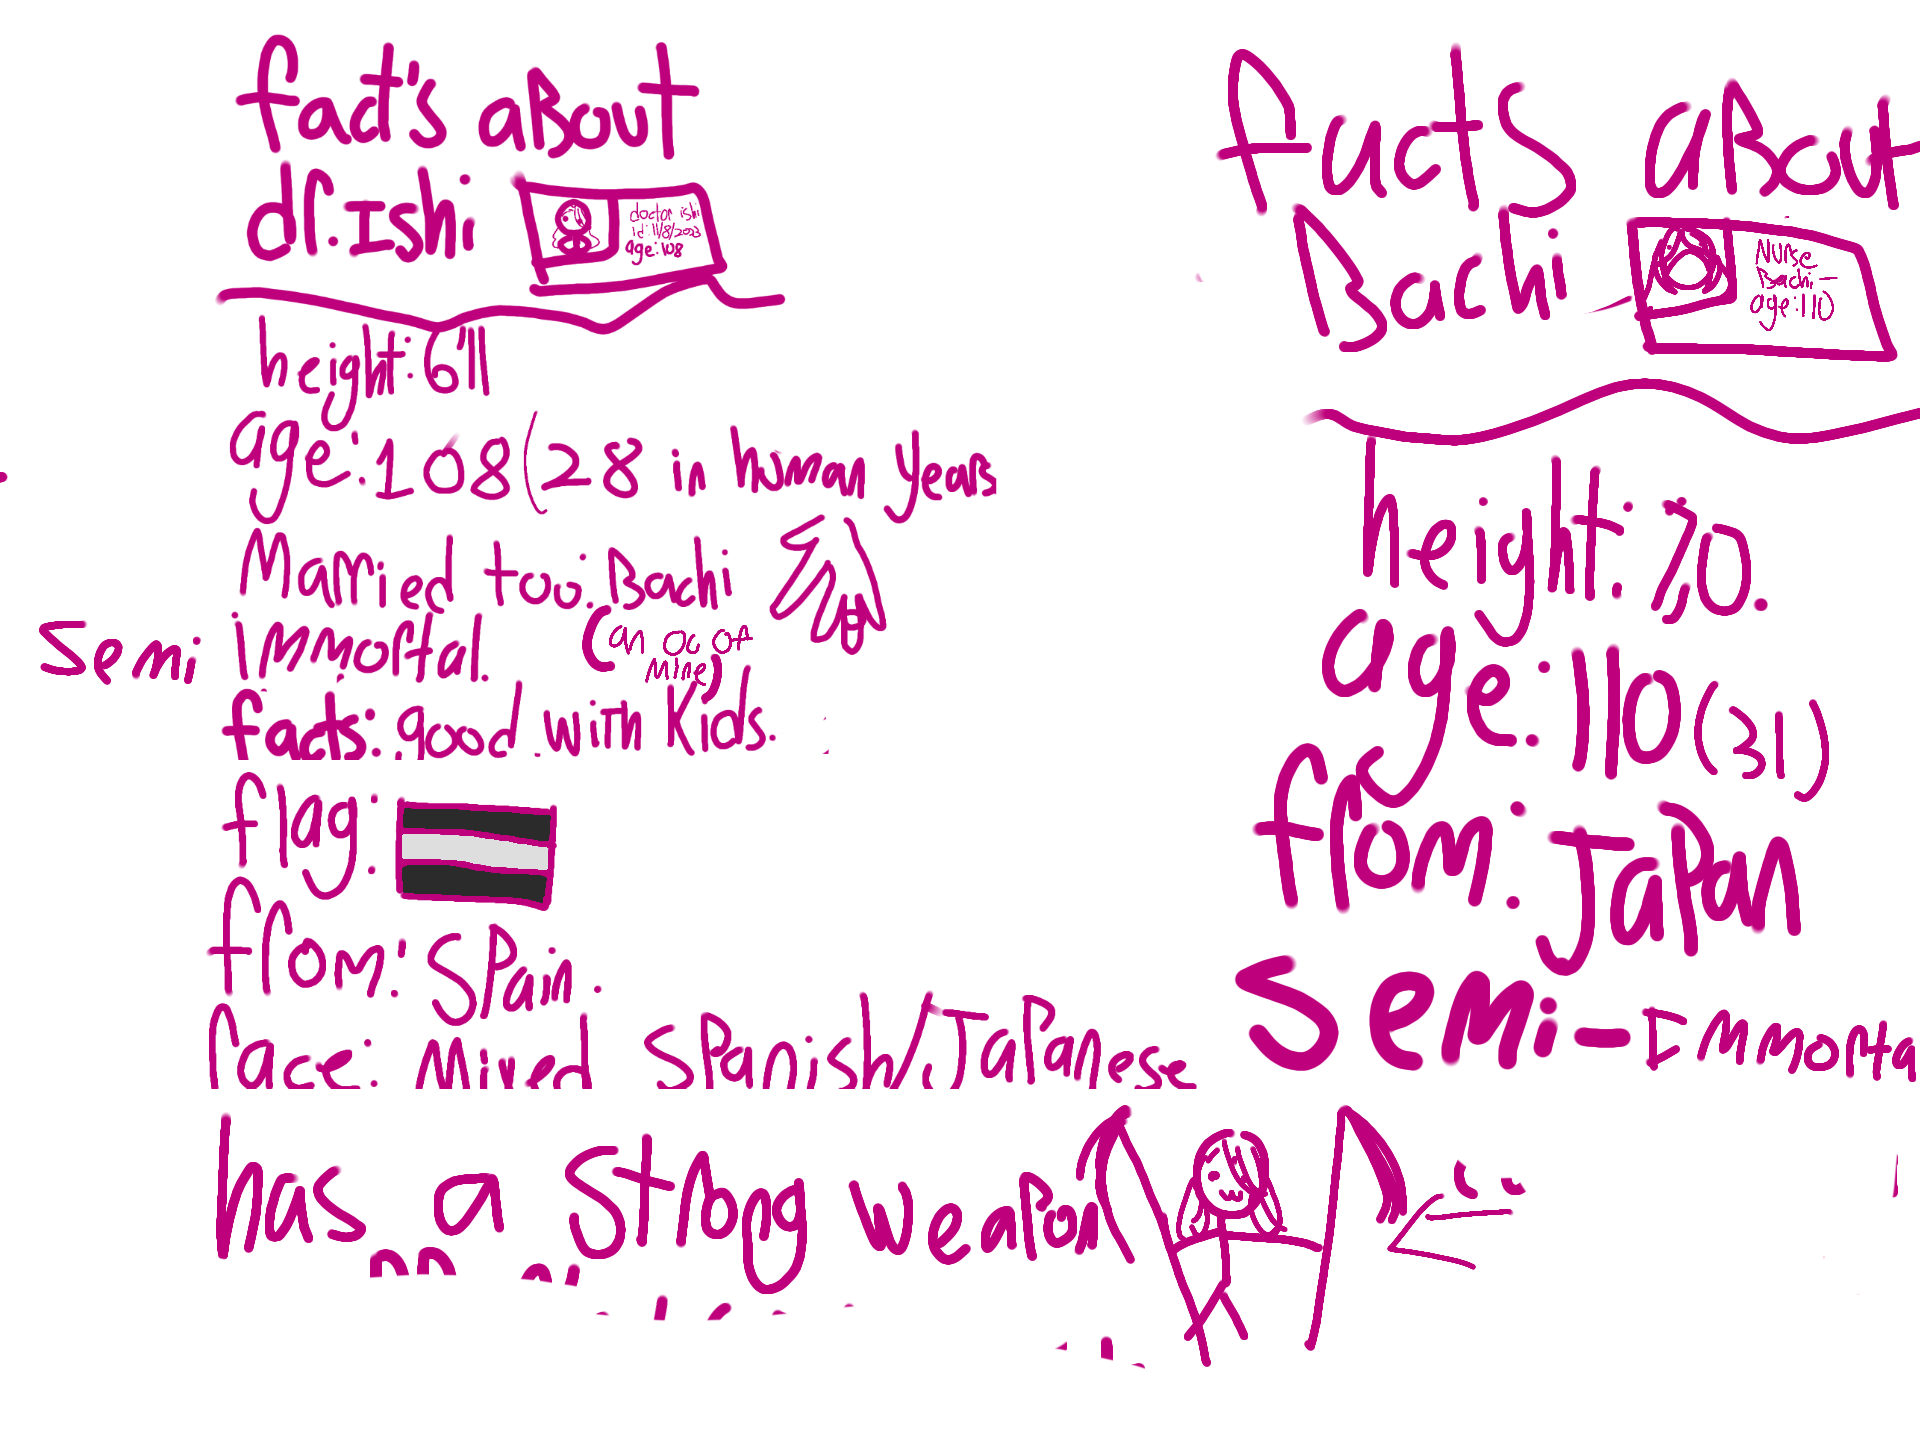 fact's aBout
dr.Ishi
doctor ishi
id:11/8/2023
age:108
height:6'11
age:108(28 in human years
Married too:Bachi
(an oc of
mine)
Semi immortal.
facts: good with kids.
flag:
from: Spain.
race: Mixed Spanish/Japanese
has a strong weapon
facts aBout
Bachi
Nurse
Bachi-
age:110
height: 7,0.
age:110(31)
from: Japan
Semi-Immorta